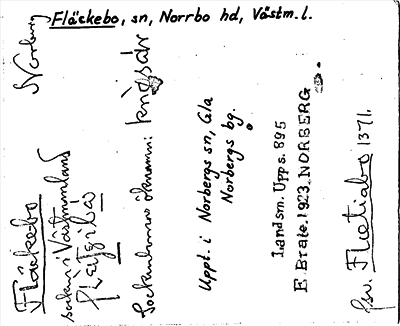 Fläckebo, sn, Norrbo hd, Västm. l.
Norberg
Fläckebo
socken i Västmanland
Sockenbornas öknamn:
Uppt. i Norbergs sn, Gla
Norbergs bg.
Landsm. Upps. 895
E. Brate. 1923. NORBERG
fsv. Flætiabo 1371.